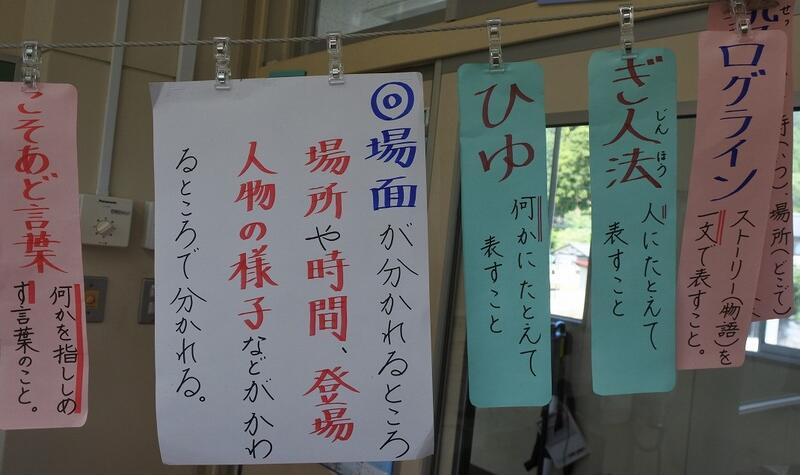 (いつ)場所(どこで)
ログライン
ストーリー(物語)を
一文で表すこと。
ぎ人法
じんほう
人にたとえて
表すこと
ひゆ
何かにたとえて
表すこと
◎場面が分かれるところ
場所や時間、登場
人物の様子などがかわ
るところで分かれる。
こそあど言葉
何かを指ししめ
す言葉のこと。
Panasonic